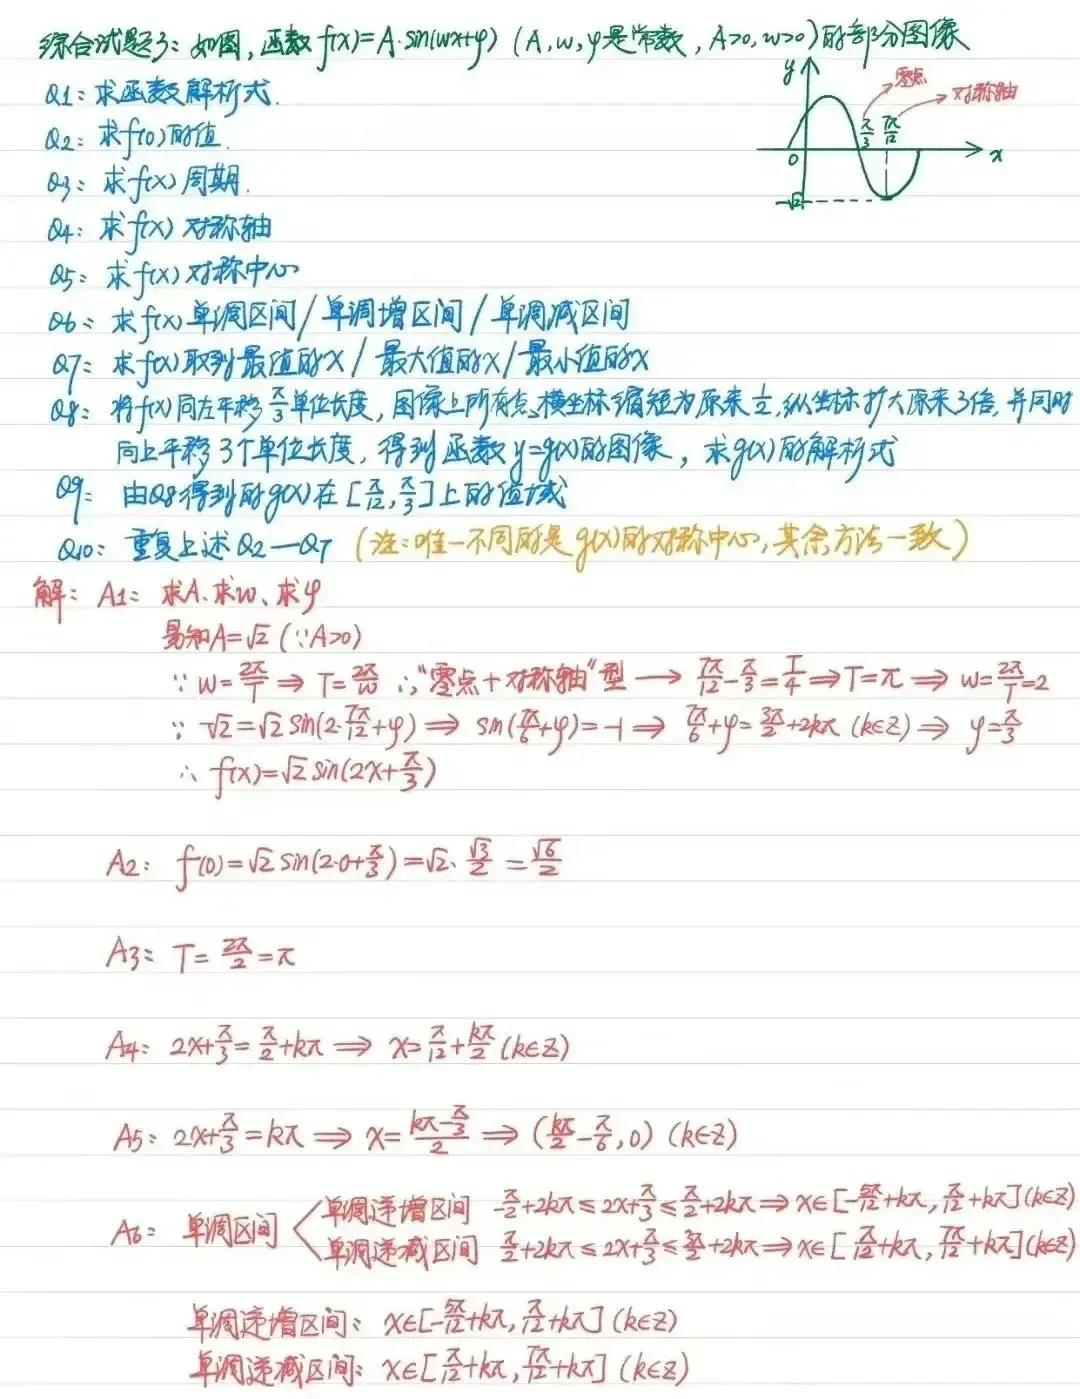 综合试题3: 如图, 函数 f(x)=A·sin(wx+φ) (A, w, φ是常数, A>0, w>0)的部分图像
y
零点
对称轴
π/3 7π/12
0
x
-√2
Q1: 求函数解析式.
Q2: 求f(0)的值.
Q3: 求f(x)周期.
Q4: 求f(x)对称轴
Q5: 求f(x)对称中心
Q6: 求f(x)单调区间/单调增区间/单调减区间
Q7: 求f(x)取到最值的x/最大值的x/最小值的x
Q8: 将f(x)向左平移π/3单位长度, 图像上所有点横坐标缩短为原来1/2, 纵坐标扩大原来3倍, 并同时
向上平移3个单位长度, 得到函数y=g(x)的图像, 求g(x)的解析式
Q9: 由Q8得到的g(x)在[π/12, π/3]上的值域
Q10: 重复上述Q2—Q7 (注:唯一不同的是g(x)的对称中心, 其余方法一致)
解: A1: 求A、求w、求φ
易知A=√2 (∵A>0)
∵ w=2π/T ⇒ T=2π/w ∴"零点+对称轴"型 → 7π/12-π/3=T/4 ⇒ T=π ⇒ w=2π/T=2
∵ -√2=√2 sin(2·7π/12+φ) ⇒ sin(7π/6+φ)=-1 ⇒ 7π/6+φ=3π/2+2kπ (k∈Z) ⇒ φ=π/3
∴ f(x)=√2 sin(2x+π/3)
A2: f(0)=√2 sin(2·0+π/3)=√2·√3/2=√6/2
A3: T=2π/2=π
A4: 2x+π/3=π/2+kπ ⇒ x=π/12+kπ/2 (k∈Z)
A5: 2x+π/3=kπ ⇒ x=(kπ-π/3)/2 ⇒ (kπ/2-π/6, 0) (k∈Z)
A6: 单调区间 单调递增区间 -π/2+2kπ≤2x+π/3≤π/2+2kπ ⇒ x∈[-5π/12+kπ, π/12+kπ](k∈Z)
单调递减区间 π/2+2kπ≤2x+π/3≤3π/2+2kπ ⇒ x∈[π/12+kπ, 7π/12+kπ](k∈Z)
单调递增区间: x∈[-5π/12+kπ, π/12+kπ] (k∈Z)
单调递减区间: x∈[π/12+kπ, 7π/12+kπ] (k∈Z)